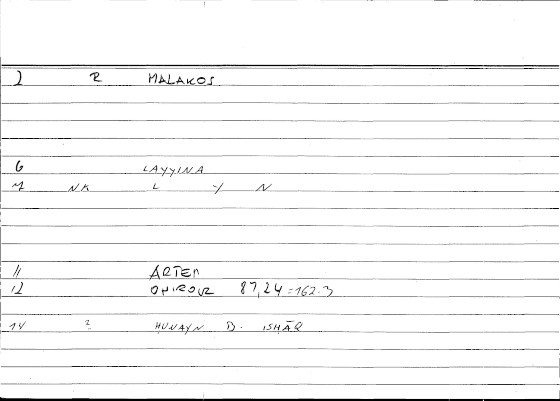 2 R MALAKOS
6 LAYYINA
7 NK L Y N
11 ARTEM
12 ONIROCR 87,24 = 162.3
14 ? HUNAYN B. ISHĀQ